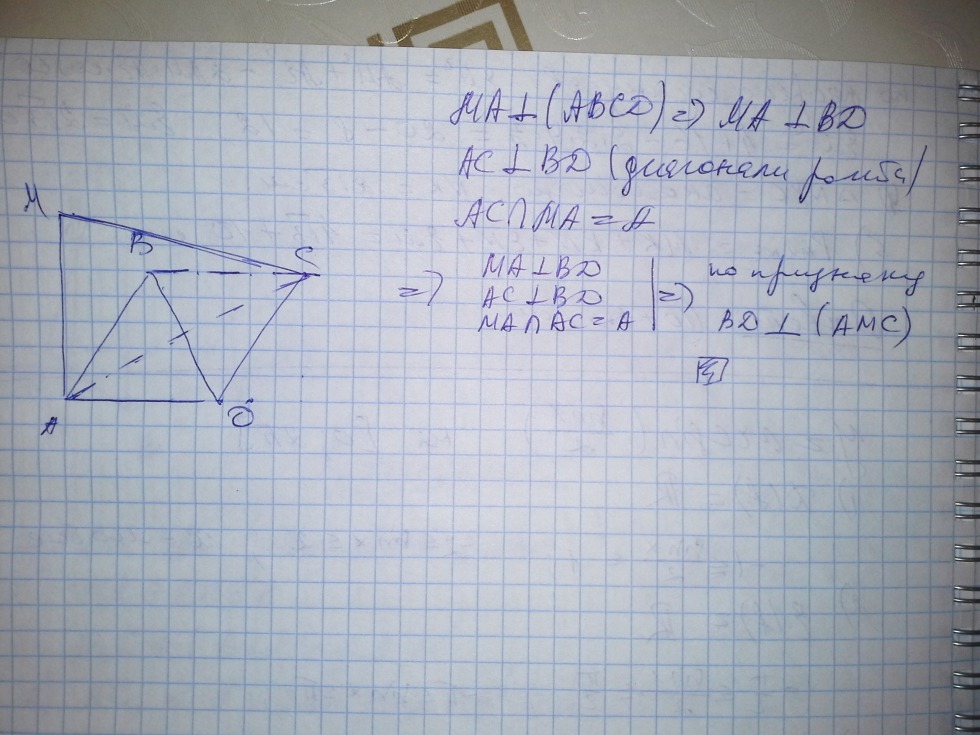 MA⊥(ABCD)=> MA⊥BD
AC⊥BD (диагонали ромба)
AC∩MA=A
=> MA⊥BD
AC⊥BD
MA∩AC=A
=> по признаку
BD⊥(AMC)
M
B
C
A